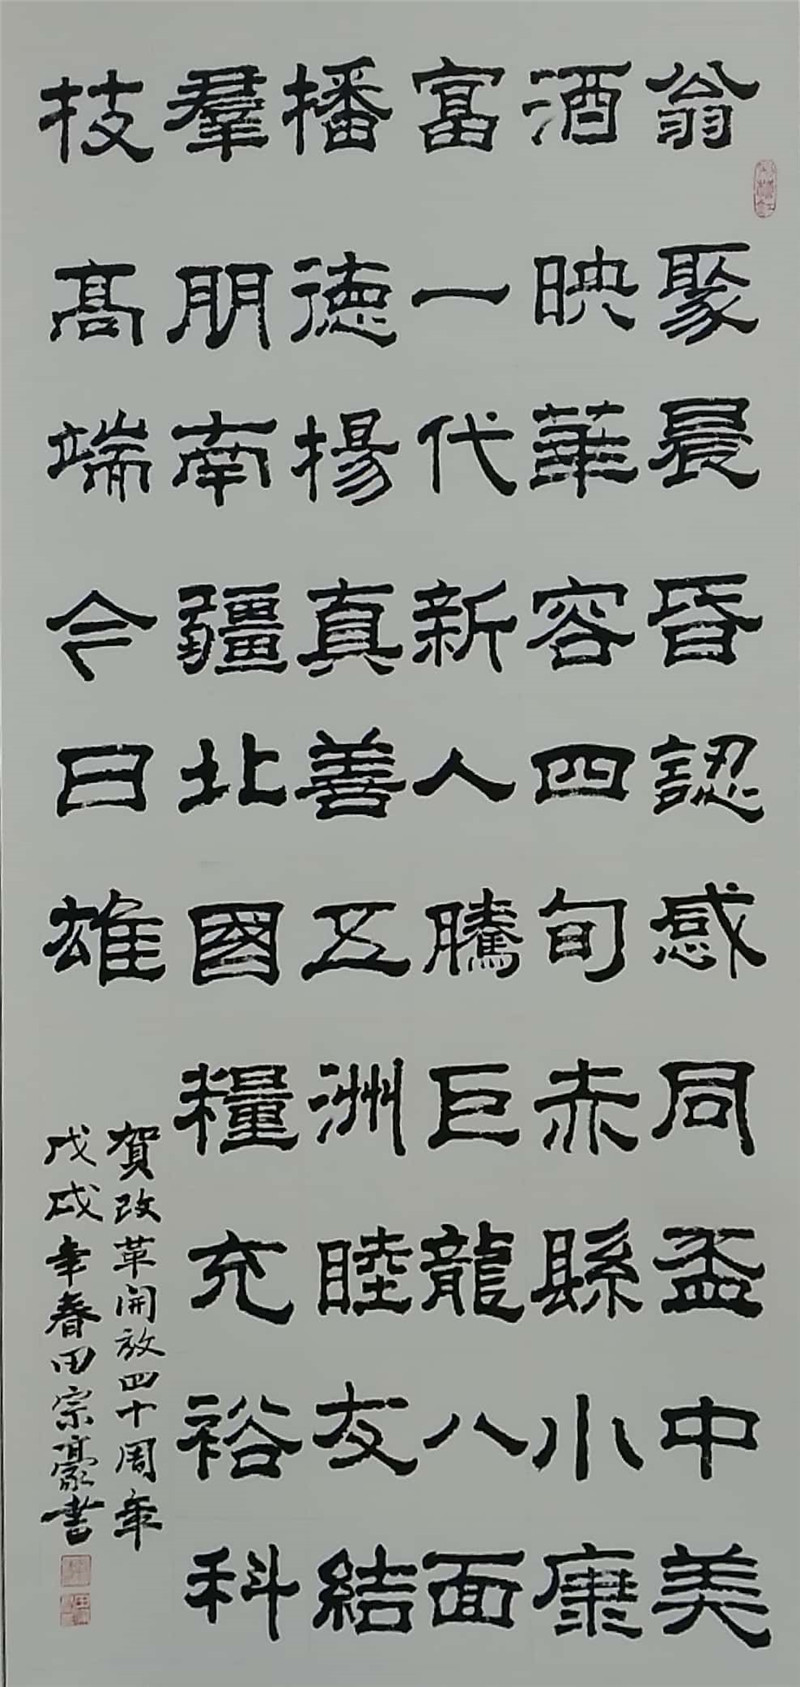 翁聚晨昏認感同盃中美
酒映華容四旬赤縣小康
富一代新人騰巨龍八面
播德揚真善五洲睦友結
羣朋南疆北國糧充裕科
技高端今日雄
賀改革開放四十周年
戊戌年春田宗豪書